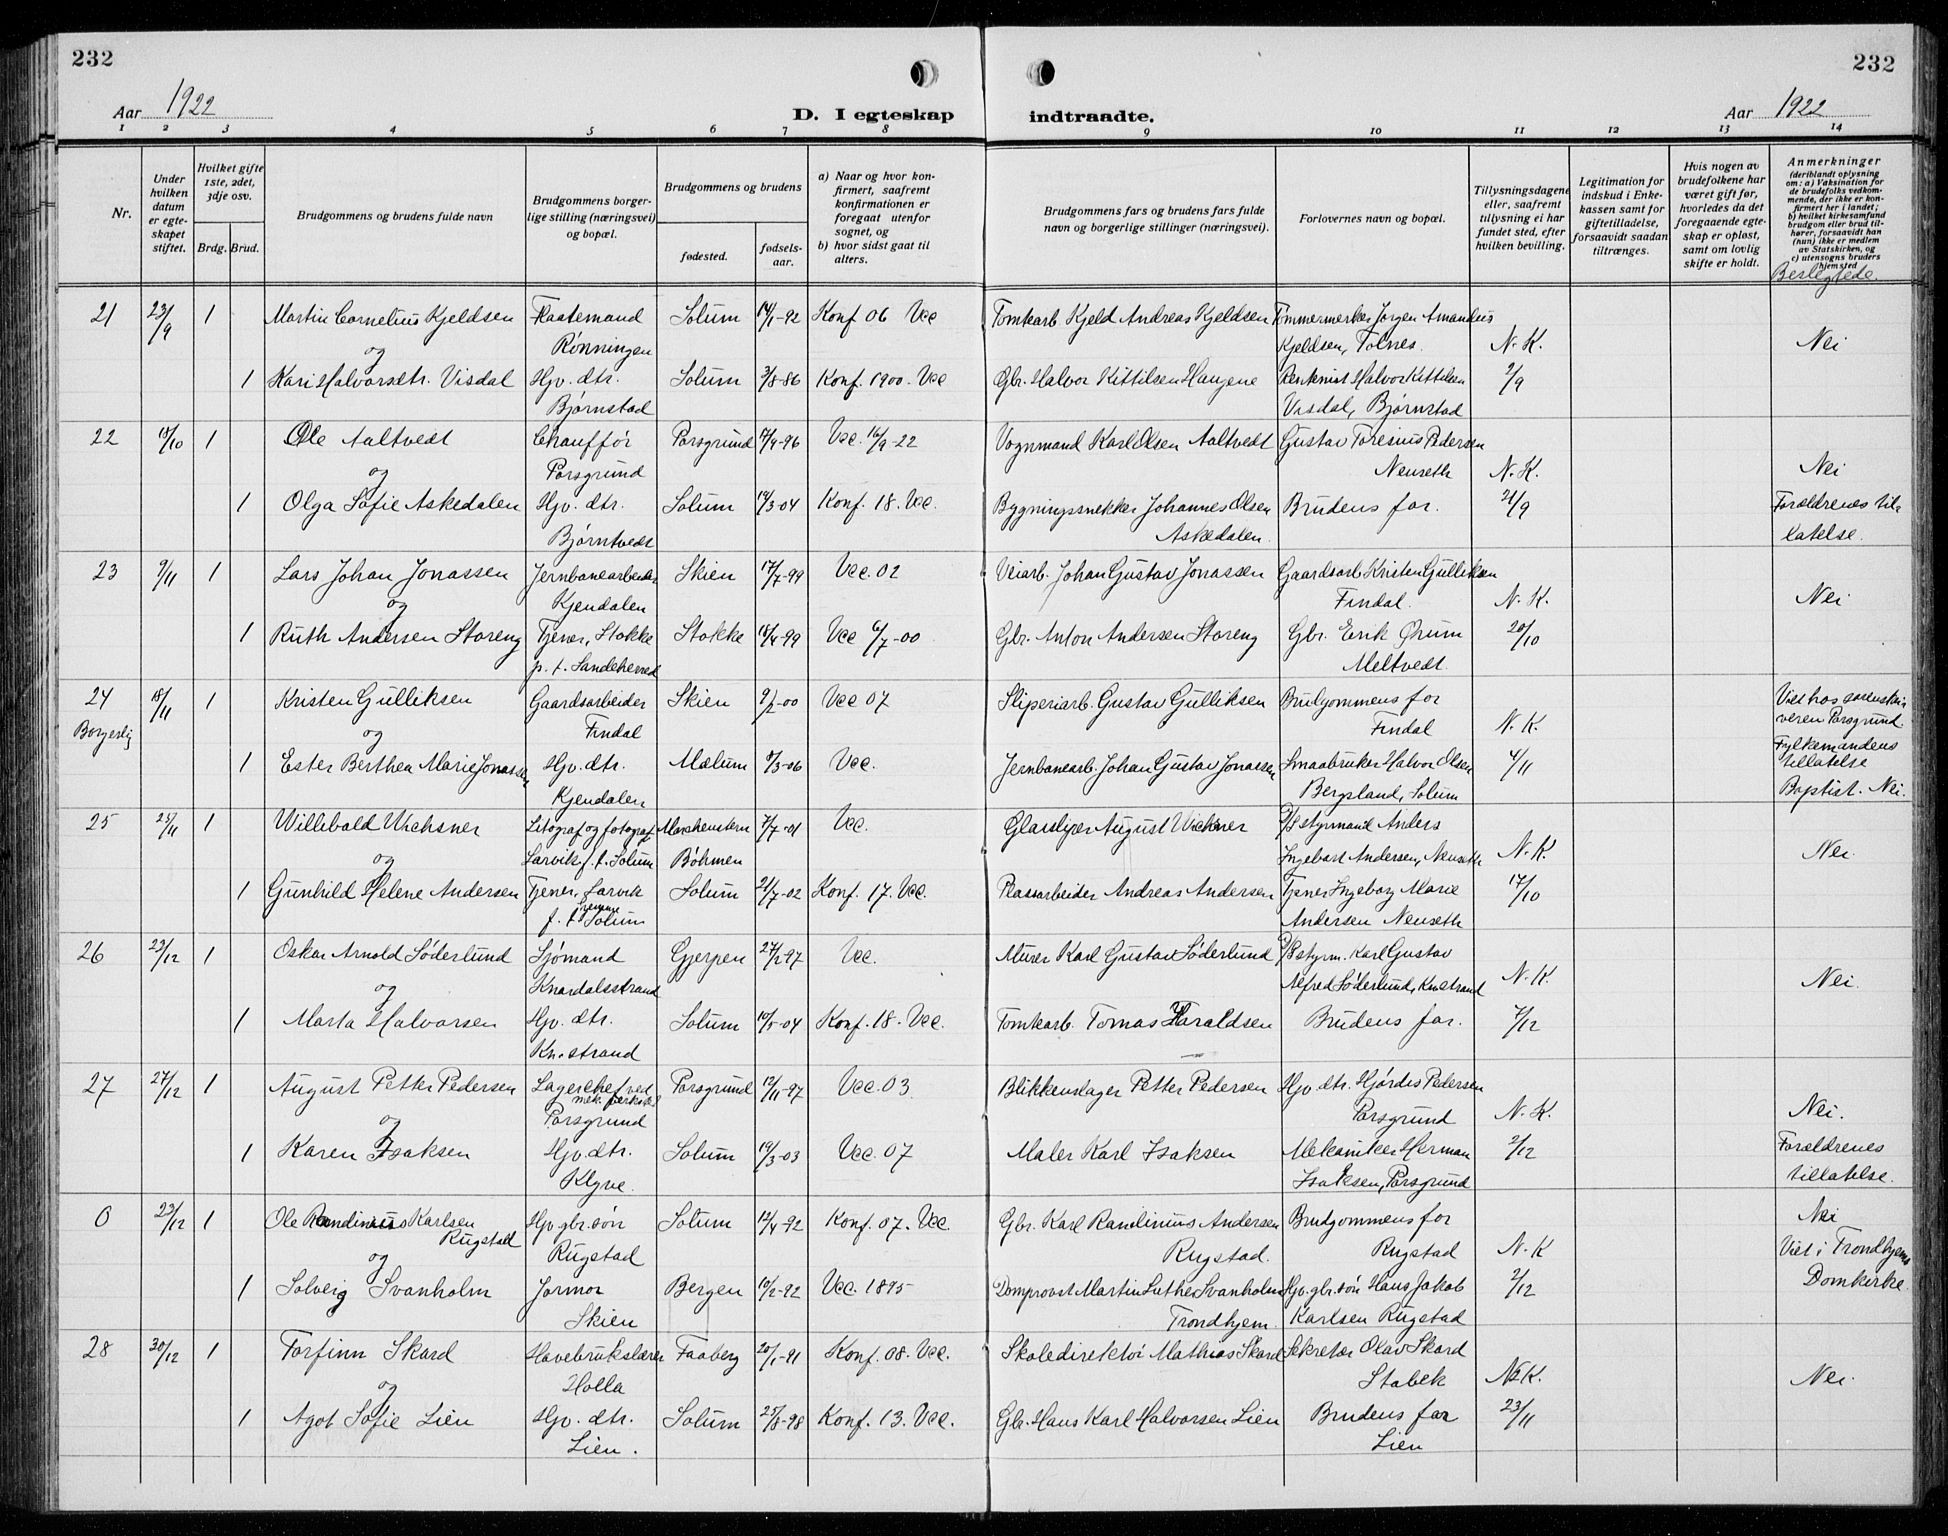 232
232
Aar 1922
D. I egteskap
indtraadte.
Aar 1922
1 2 3 4 5 6 7 8 9 10 11 12 13 14
Nr.
Under hvilken datum er egteskapet stiftet.
Hvilket gifte 1ste, 2det, 3dje osv.
Brdg. Brud.
Brudgommens og brudens fulde navn
Brudgommens borgerlige stilling (næringsvei) og bopæl.
Brudgommens og brudens
fødested.
fødselsaar.
a) Naar og hvor konfirmert, saafremt konfirmationen er foregaat utenfor sognet, og
b) hvor sidst gaat til alters.
Brudgommens fars og brudens fars fulde navn og borgerlige stillinger (næringsvei).
Forlovernes navn og bopæl.
Tillysningsdagene eller, saafremt tillysning ei har fundet sted, efter hvilken bevilling.
Legitimation for indskud i Enkekassen samt for giftetilladelse, forsaavidt saadan tiltrænges.
Hvis nogen av brudefolkene har været gift før, hvorledes da det foregaaende egteskap er opløst, samt om lovlig skifte er holdt.
Anmerkninger (deriblandt oplysning om: a) Vaksination for de brudefolks vedkommende, der ikke er konfirmert her i landet; b) hvilket kirkesamfund brudgom eller brud tilhører, forsaavidt han (hun) ikke er medlem av Statskirken, og c) utensogns bruders hjemsted
Beslegtede.
21 23/9 1 Martin Cornelius Kjeldsen Flaatemand Solum 14/1-92 Konf 06 Vcc Tomkarb. Kjeld Andreas Kjeldsen Tømmermerker Jørgen Amandus
og Rønningen Kjeldsen, Tolnes. N. K. Nei
1 Kari Halvorsdtr. Visdal Hjv. dtr. Solum 3/8-86 Konf. 1900. Vcc Gbr. Halvor Kittilsen Haugene Repknist Halvor Kittilsen 2/9
Bjørnstad Visdal, Bjørnstad
22 15/10 1 Ole Aaltvedt Chauffør Porsgrund 17/9-96 Vcc. 16/9-22 Vognmand Karl Olsen Aaltvedt Gustav Toresius Pedersen
og Porsgrund Nenseth N. K. Nei
1 Olga Sofie Askedalen Hjv. dtr. Solum 14/3-04 Konf. 18. Vcc. Bygningssnekker Johannes Olsen Brudens far. 21/9 Forældrenes til
Bjørntvedt Askedalen. latelse.
23 9/11 1 Lars Johan Jonassen Jernbanearbeider Skien 17/7-99 Vcc. 02 Veiarb. Johan Gustav Jonassen Gaardsarb Kristen Gulliksen
og Kjendalen Findal. N. K. Nei
1 Ruth Andersen Storeng Tjener, Stokke Stokke 18/4-99 Vcc 6/7-00 Gbr. Anton Andersen Storeng Gbr. Erik Ørum 20/10
p. t. Sandeherred Meltvedt.
24 18/11 1 Kristen Gulliksen Gaardsarbeider Skien 9/2-00 Vcc 07 Sliperiarb. Gustav Gulliksen Brudgommens far Viet hos sorenskri
Borgerlig og Findal Findal N. K. veren Porsgrund.
1 Ester Berthea Marie Jonassen Hjv. dtr. Mælum 8/3-06 Vcc. Jernbanearb. Johan Gustav Jonassen Smaabruker Halvor Olsen 4/11 Fylkemandens tillatelse
Kjendalen Bergsland, Solum Baptist. Nei.
25 25/11 1 Willibald Wichsner Litograf og fotograf 7/7-01 Vcc. Glassliper August Wichsner D/S styrmand Anders
og Larvik f. t. Solum Böhmen Ingebart Andersen, Nenseth N. K. Nei.
1 Gunhild Helene Andersen Tjener, Larvik Solum 21/7-02 Konf. 17. Vcc. Plassarbeider Andreas Andersen Tjener Ingeborg Marie 17/10
f. t. hjemme Solum Andersen Nenseth
26 23/12 1 Oskar Arnold Søderlund Sjømand Gjerpen 27/2-97 Vcc. Murer Karl Gustav Søderlund D/S styrm. Karl Gustav
og Knardalsstrand Alfred Søderlund, Knstrand N. K. Nei.
1 Marta Halvorsen Hjv. dtr. Solum 10/5-04 Konf. 18. Vcc. Tomkarb. Tomas Haraldsen Brudens far. 7/12
Kn.strand
27 27/12 1 August Petter Pedersen Lagerchef ved Porsgrund 12/11-97 Vcc. 03 Blikkenslager Petter Pedersen Hjv. dtr. Hjørdis Pedersen
og mek. verksted Porsgrund Porsgrund N. K. Nei.
1 Karen Isaksen Hjv. dtr. Solum 19/3-03 Vcc. 07 Maler Karl Isaksen Mekaniker Herman 2/12 Forældrenes
Klyve. Isaksen, Porsgrund tillatelse.
0 23/12 1 Ole Randinius Karlsen Hjv. gbr. søn Solum 12/4-92 Konf. 07. Vcc. Gbr. Karl Randinius Andersen Brudgommens far Nei
Rugstad
og Rugstad Rugstad. Rugstad N. K Viet i Trondhjems
1 Solveig Svanholm Jormor Bergen 10/2-92 Vcc. 1895 Domprovst Martin Luther Svanholm Hjv. gbr. søn Hans Jakob 2/12 Domkirke.
Skien Trondhjem. Karlsen Rugstad
28 30/12 1 Torfinn Skard Havebrukslærer Faaberg 20/1-91 Konf. 08. Vcc. Skoledirektør Mathias Skard Sekretær Olav Skard
og Holla Stabek N. K. Nei.
1 Agot Sofie Lien Hjv. dtr. Solum 25/8-98 Konf. 13. Vcc. Gbr. Hans Karl Halvorsen Lien Brudens far 23/11
Lien. Lien